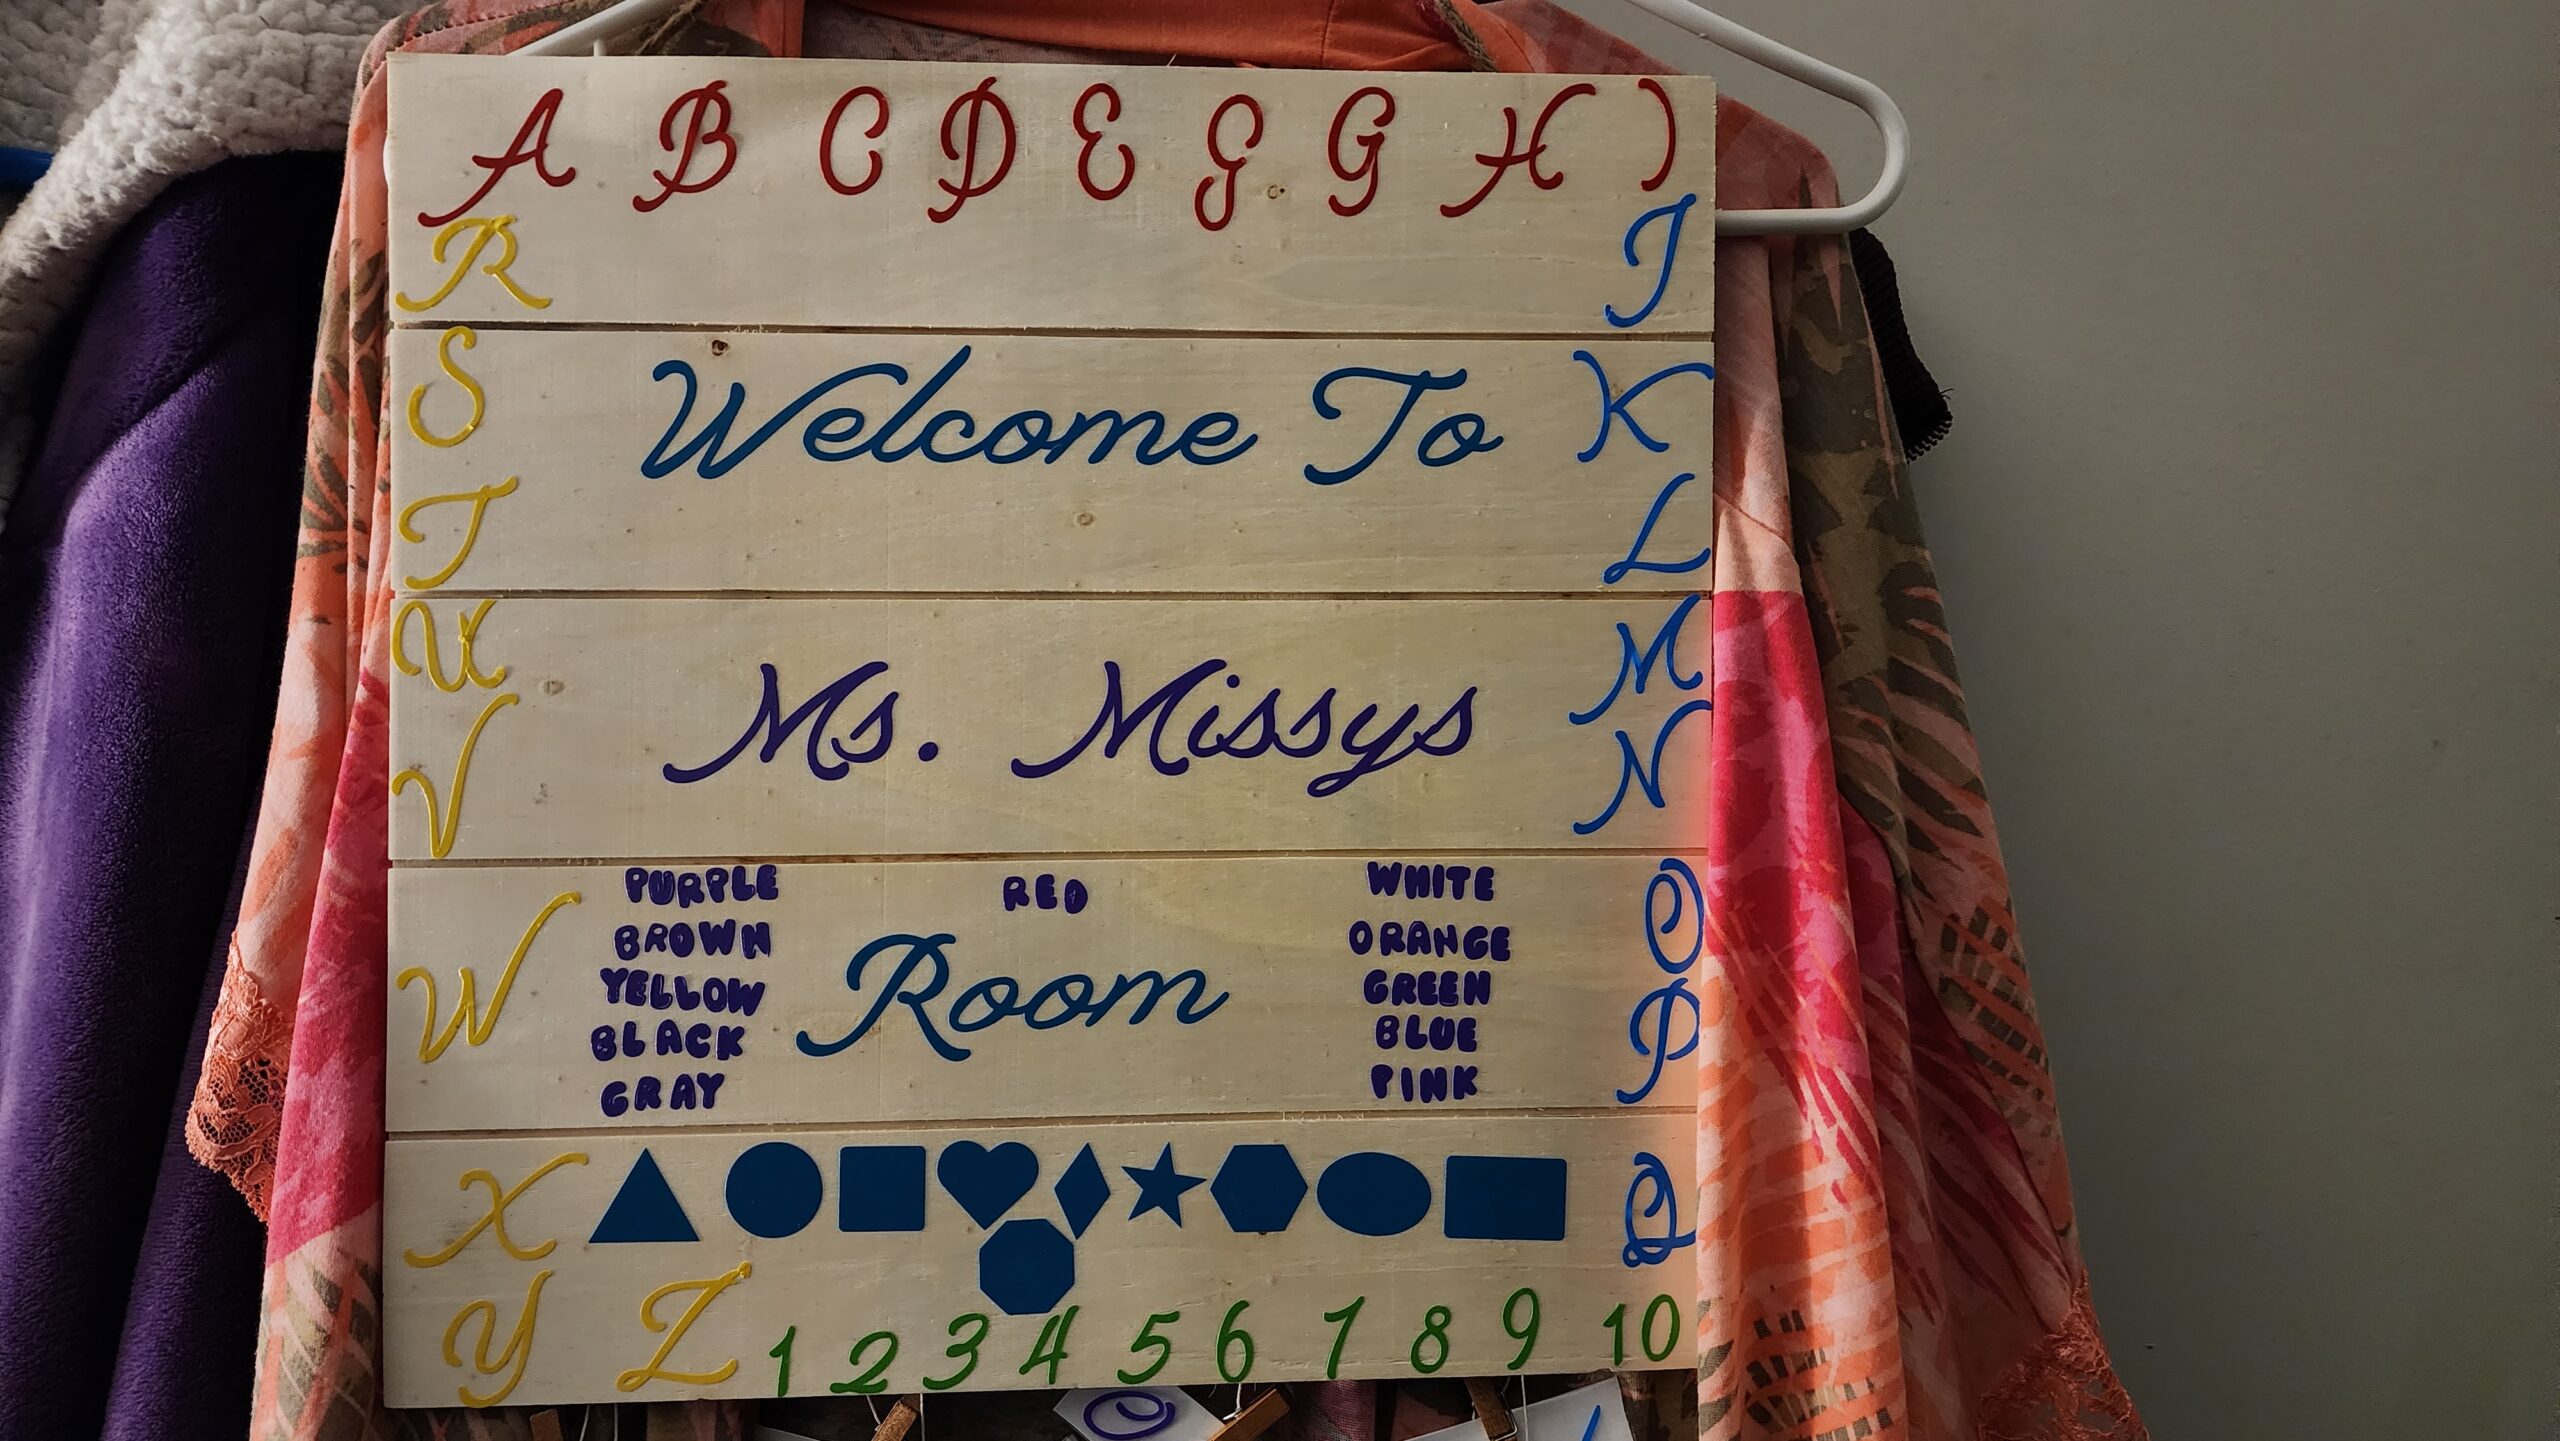 A B C D E F G H I
R J
S Welcome To K
T L
U Ms. Missys M
V N
PURPLE RED WHITE O
BROWN ORANGE
W YELLOW Room GREEN P
BLACK BLUE
GRAY PINK
X Q
Y Z 1 2 3 4 5 6 7 8 9 10
O